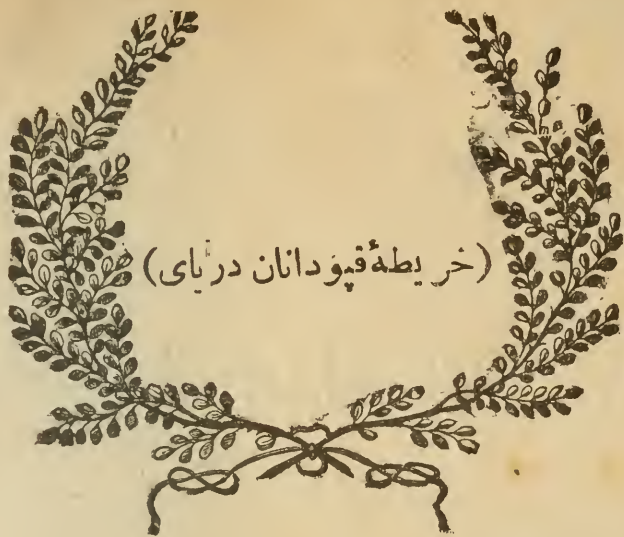 (خريطهٔ قپودانان درياى)